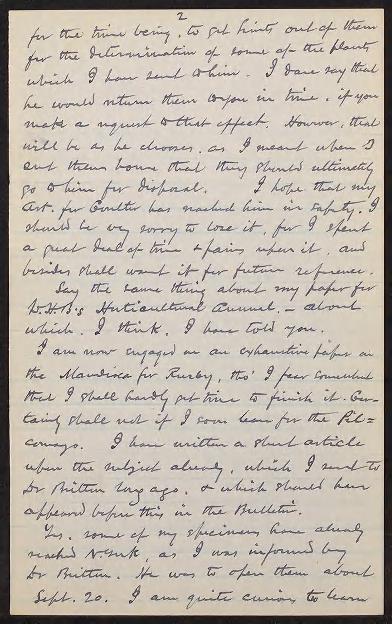 2
for the time being, to get hints out of them
for the determination of some of the plants
which I have sent to him. I dare say that
he would return them to you in time, if you
make a request to that effect. However, that
will be as he chooses, as I meant when I
sent them home that they should ultimately
go to him for disposal. I hope that my
art. for Coulter has reached him in safety. I
should be very sorry to lose it, for I spent
a great deal of time & pains upon it, and
besides shall want it for future reference.
Say the same thing about my paper for
Horticultural Annual, - about
which, I think, I have told you.
I am now engaged on an exhaustive paper on
the Mandioca for Rusby, tho' I fear somewhat
that I shall hardly get time to finish it. Cer-
tainly shall not if I soon leave for the Pil=
comayo. I have written a short article
upon the subject already, which I sent to
Dr Britton long ago, & which should have
appeared before this in the Bulletin.
Yes, some of my specimens have already
reached N. York, as I was informed by
Dr Britton. He was to open them about
Sept. 20. I am quite curious to learn